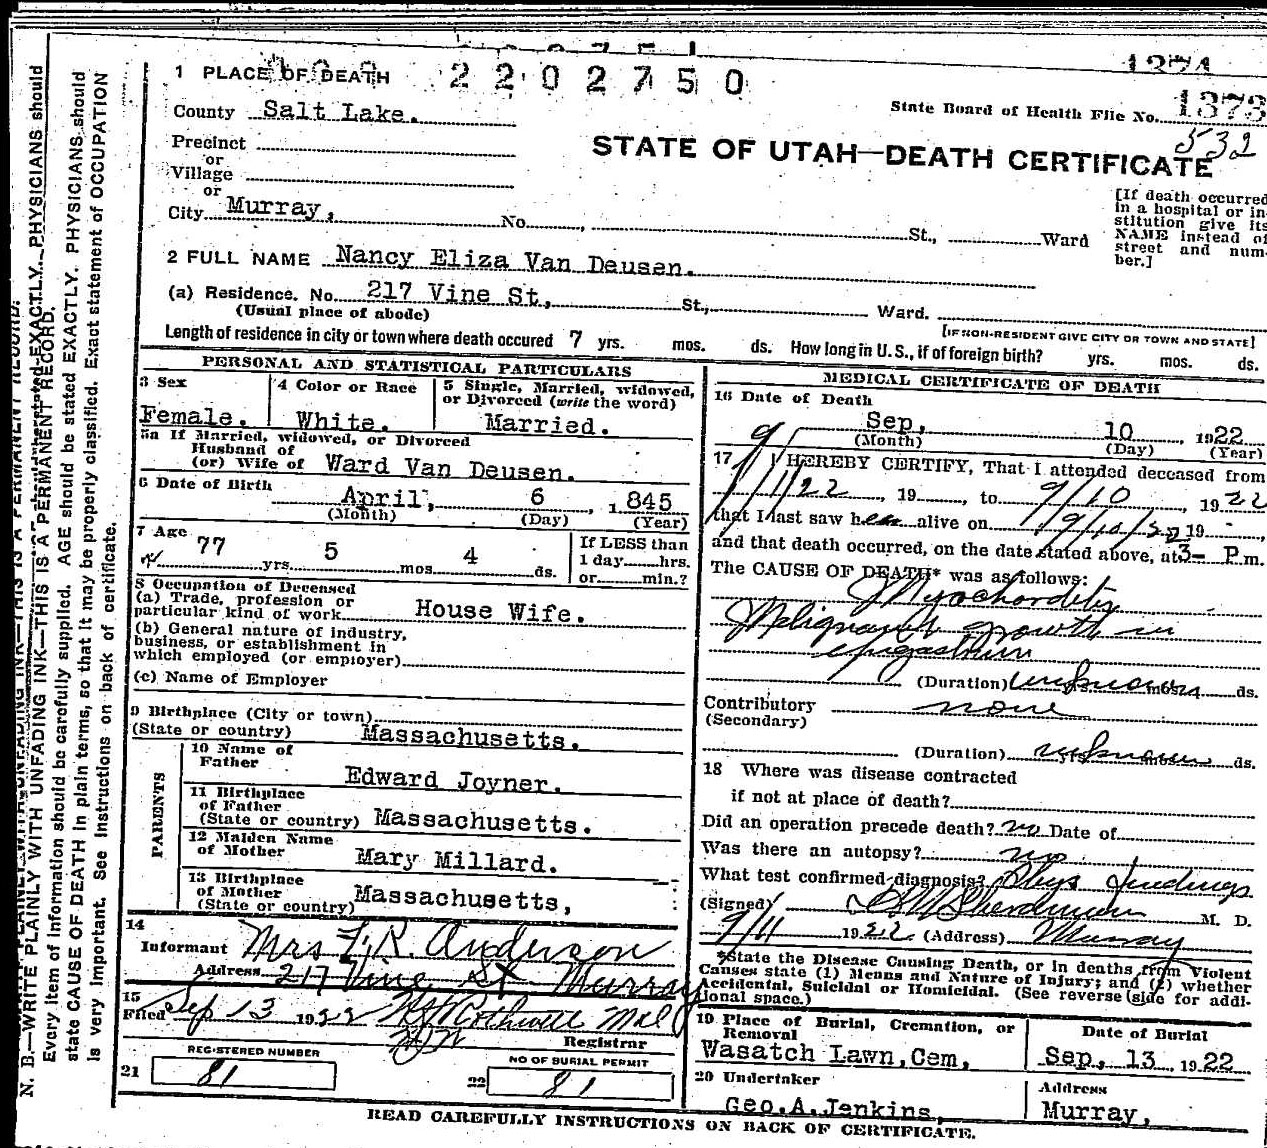 1 PLACE OF DEATH 2202750
County Salt Lake.
State Board of Health File No. 1373
532
Precinct
or
Village
or
City Murray, No. , St., Ward
STATE OF UTAH—DEATH CERTIFICATE
[If death occurred
in a hospital or in-
stitution give its
NAME instead of
street and num-
ber.]
2 FULL NAME Nancy Eliza Van Deusen.
(a) Residence. No. 217 Vine St, St., Ward.
(Usual place of abode)
[IF NON-RESIDENT GIVE CITY OR TOWN AND STATE]
Length of residence in city or town where death occured 7 yrs. mos. ds. How long in U.S., if of foreign birth? yrs. mos. ds.
PERSONAL AND STATISTICAL PARTICULARS
3 Sex
Female.
4 Color or Race
White.
5 Single, Married, widowed,
or Divorced (write the word)
Married.
5a If Married, widowed, or Divorced
Husband of
(or) Wife of Ward Van Deusen.
6 Date of Birth
April, 6 , 1 845
(Month) (Day) (Year)
7 Age
77 yrs. 5 mos. 4 ds.
If LESS than
1 day hrs.
or min.?
8 Occupation of Deceased
(a) Trade, profession or
particular kind of work House Wife.
(b) General nature of industry,
business, or establishment in
which employed (or employer)
(c) Name of Employer
9 Birthplace (City or town)
(State or country) Massachusetts.
PARENTS
10 Name of
Father
Edward Joyner.
11 Birthplace
of Father
(State or country) Massachusetts.
12 Maiden Name
of Mother Mary Millard.
13 Birthplace
of Mother
(State or country) Massachusetts,
14
Informant Mrs F. R. Anderson
Address 217 Vine St Murray
15
Filed Sep 13 1922
Registrar
REGISTERED NUMBER
21 81
NO OF BURIAL PERMIT
22 81
MEDICAL CERTIFICATE OF DEATH
16 Date of Death
Sep, 10 , 1922
(Month) (Day) (Year)
17 I HEREBY CERTIFY, That I attended deceased from
9/1/22 , 19 , to 9/10 , 1922
that I last saw her alive on 9/10/22 19 ,
and that death occurred, on the date stated above, at 3- P m.
The CAUSE OF DEATH* was as follows:
Myochorditis
Malignant growth in
epigastrium
(Duration) unknown mos. ds.
Contributory none
(Secondary)
(Duration) unknown ds.
18 Where was disease contracted
if not at place of death?
Did an operation precede death? no Date of
Was there an autopsy? no
What test confirmed diagnosis? Phys findings
(Signed) M. D.
9/11 1922 (Address) Murray
*State the Disease Causing Death, or in deaths from Violent
Causes state (1) Means and Nature of Injury; and (2) whether
Accidental, Suicidal or Homicidal. (See reverse side for addi-
tional space.)
19 Place of Burial, Cremation, or
Removal
Wasatch Lawn, Cem,
Date of Burial
Sep, 13 1922
20 Undertaker
Geo. A. Jenkins,
Address
Murray,
READ CAREFULLY INSTRUCTIONS ON BACK OF CERTIFICATE.
N. B.—WRITE PLAINLY WITH UNFADING INK—THIS IS A PERMANENT RECORD.
Every item of information should be carefully supplied. AGE should be stated EXACTLY. PHYSICIANS should
state CAUSE OF DEATH in plain terms, so that it may be properly classified. Exact statement of OCCUPATION
is very important. See instructions on back of certificate.